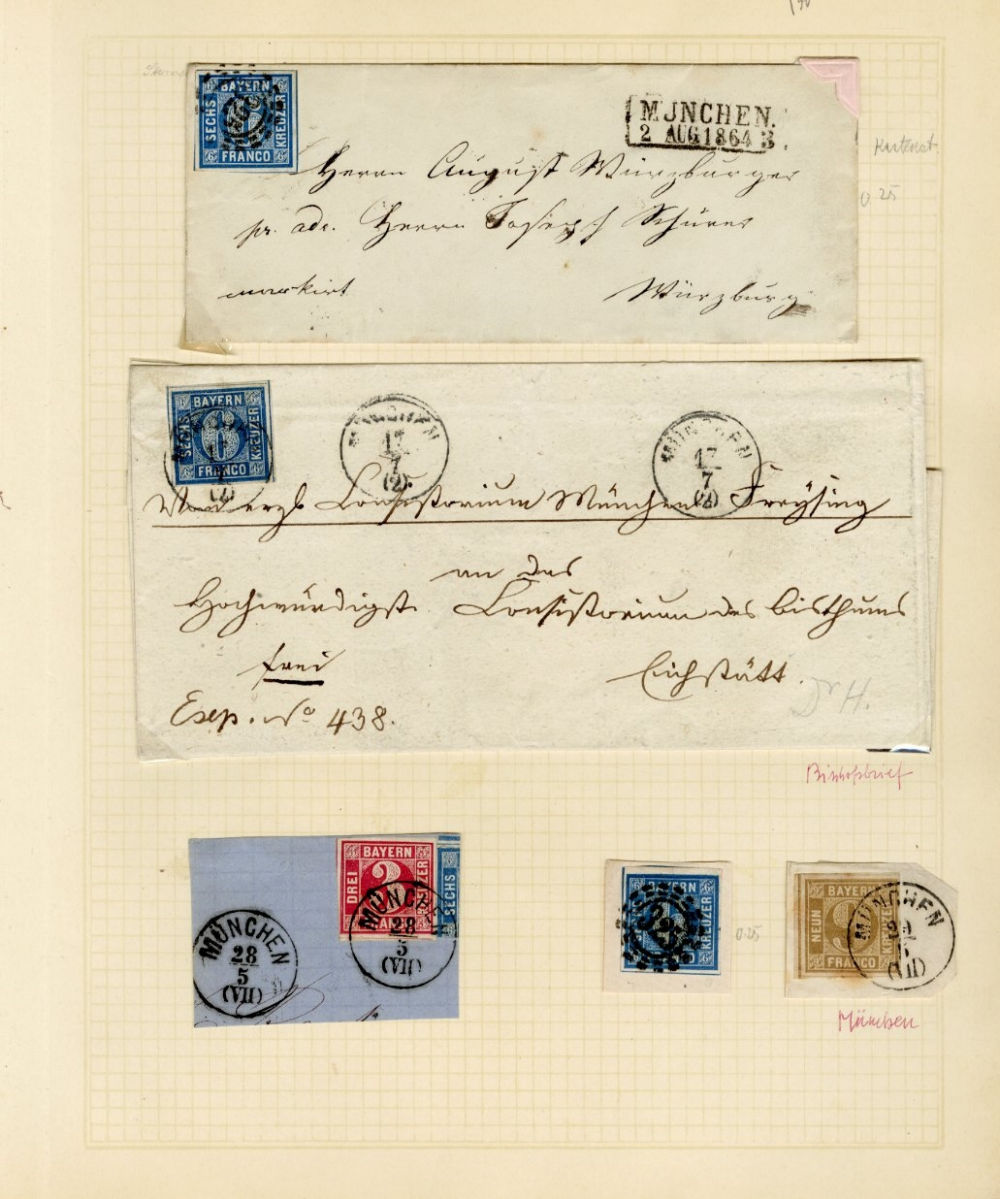 BAYERN
SECHS
6
KREUZER
FRANCO
MÜNCHEN.
2 AUG 1864 3
Herrn August Würzburger
0.25
pr. adr. Herrn Joseph Schürer
markirt
Würzburg
BAYERN
SECHS
6
KREUZER
FRANCO
MÜNCHEN
17
7
(2)
MÜNCHEN
17
7
(2)
Consistorium München Freysing
an das
Hochwürdigste Consistorium des Bisthums
frei
Eichstätt.
Dr H.
Exp. No 438.
Bischofsbrief
BAYERN
DREI
3
KREUZER
FRANCO
SECHS
MÜNCHEN
28
5
(VII)
MÜNCHEN
28
5
(VII)
BAYERN
KREUZER
0.25
BAYERN
NEUN
9
FRANCO
MÜNCHEN
(VII)
München